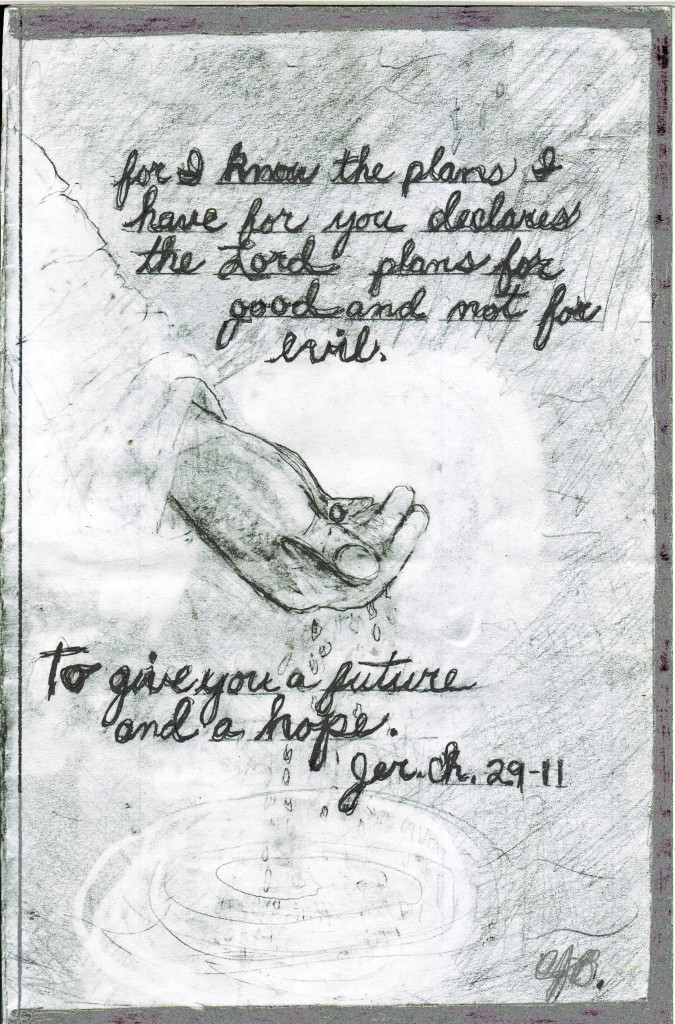 for I know the plans I
have for you declares
the Lord plans for
good and not for
evil.
To give you a future
and a hope.
Jer. Ch. 29-11